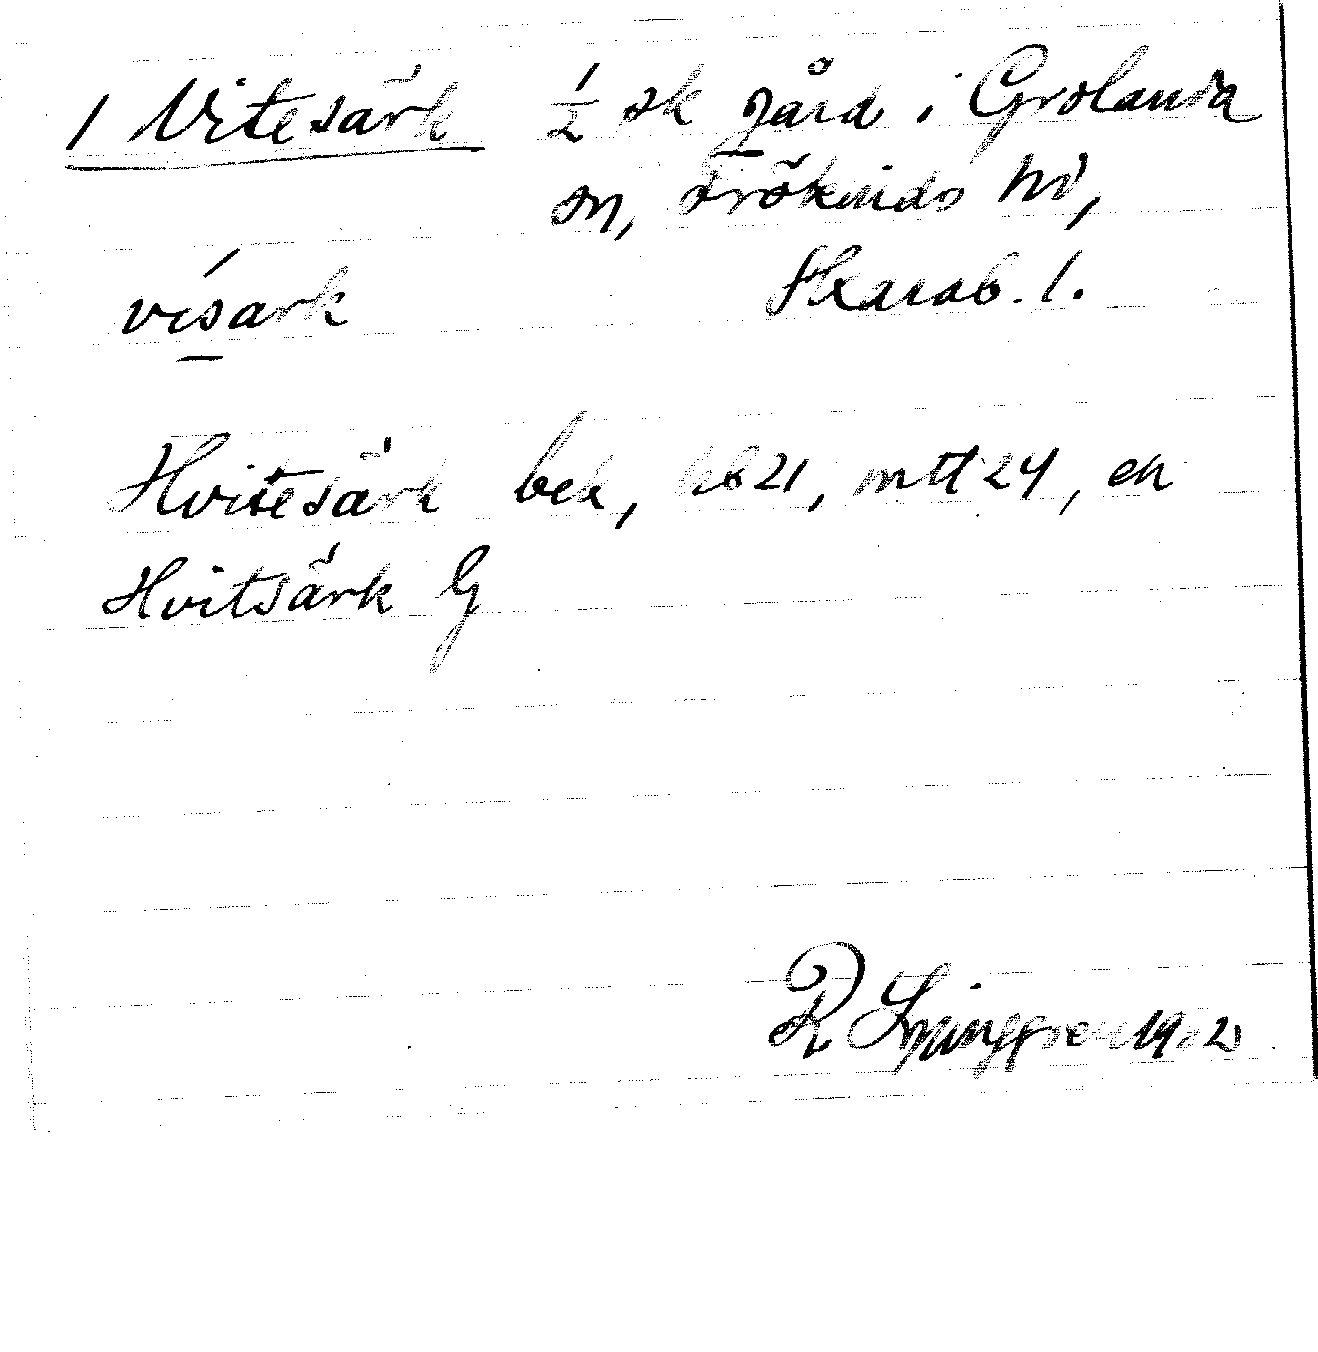 1 Vitesärk ½ sk gård i Grolanda
sn, Frökinds hd,
Skarab. l.
vísark
Hvitesärk bek, kb 21, mtl 24, ek
Hvitsärk G
R Ljunggren